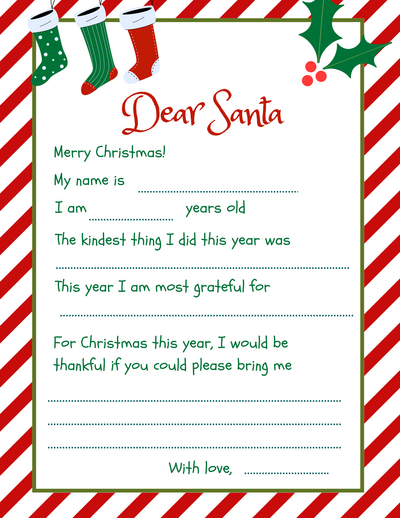 Dear Santa
Merry Christmas!
My name is
I am years old
The kindest thing I did this year was
This year I am most grateful for
For Christmas this year, I would be
thankful if you could please bring me
With love,